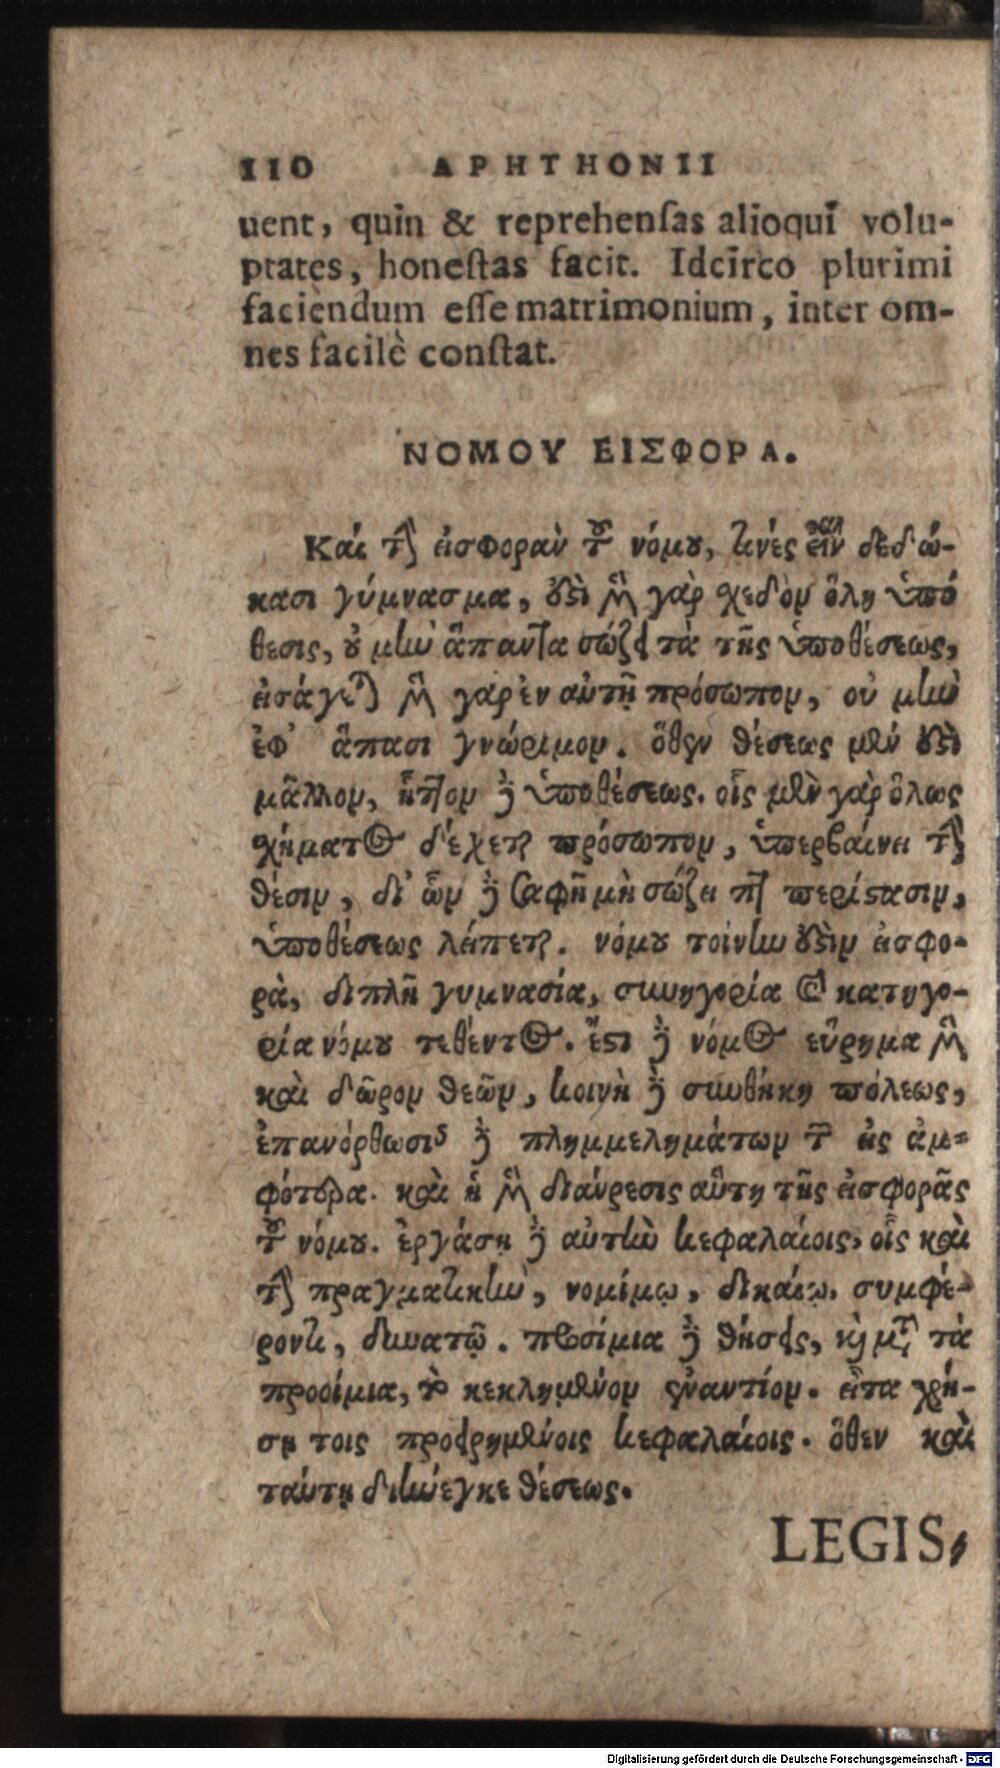 110 APHTHONII
uent, quin & reprehenſas alioqui volu-
ptates, honeſtas facit. Idcirco plurimi
faciẽndum eſſe matrimonium, inter om-
nes facilè conſtat.
ΝΟΜΟΥ ΕΙΣΦΟΡΑ.
Καὶ τὴν εἰσφορὰν τοῦ νόμου, τινὲς εἶναι δεδώ-
κασι γύμνασμα, ἔστι μὲν γὰρ σχεδὸν ὅλη ὑπό
θεσις, οὐ μὴν ἅπαντα σώζει τὰ τῆς ὑποθέσεως,
εἰσάγεται μὲν γὰρ ἐν αὐτῇ πρόσωπον, οὐ μὴν
ἐφ' ἅπασι γνώριμον. ὅθεν θέσεως μέν ἐστι
μᾶλλον, ἧττον δὲ ὑποθέσεως. οἷς μὲν γὰρ ὅλως
σχήματος δέχεται πρόσωπον, ὑπερβαίνει τὴν
θέσιν, δι' ὧν δὲ σαφῆ μὴ σώζει τὴν περίστασιν,
ὑποθέσεως λείπεται. νόμου τοίνυν ἐστὶν εἰσφο-
ρὰ, διπλῆ γυμνασία, συνηγορία καὶ κατηγο-
ρία νόμου τεθέντος. ἔστι δὲ νόμος εὕρημα μὲν
καὶ δῶρον θεῶν, κοινὴ δὲ συνθήκη πόλεως,
ἐπανόρθωσις δὲ πλημμελημάτων τῶν εἰς ἀμ-
φότερα. καὶ ἡ μὲν διαίρεσις αὕτη τῆς εἰσφορᾶς
τοῦ νόμου. ἐργάσῃ δὲ αὐτὴν κεφαλαίοις, οἷς καὶ
τὴν πραγματικὴν, νομίμῳ, δικαίῳ, συμφέ-
ροντι, δυνατῷ. προοίμια δὲ θήσεις, καὶ μετὰ τὰ
προοίμια, τὸ κεκλημένον ἐναντίον. εἶτα χρή-
σῃ τοῖς προειρημένοις κεφαλαίοις. ὅθεν καὶ
ταύτῃ διήνεγκε θέσεως.
LEGIS,
Digitalisierung gefördert durch die Deutsche Forschungsgemeinschaft - DFG